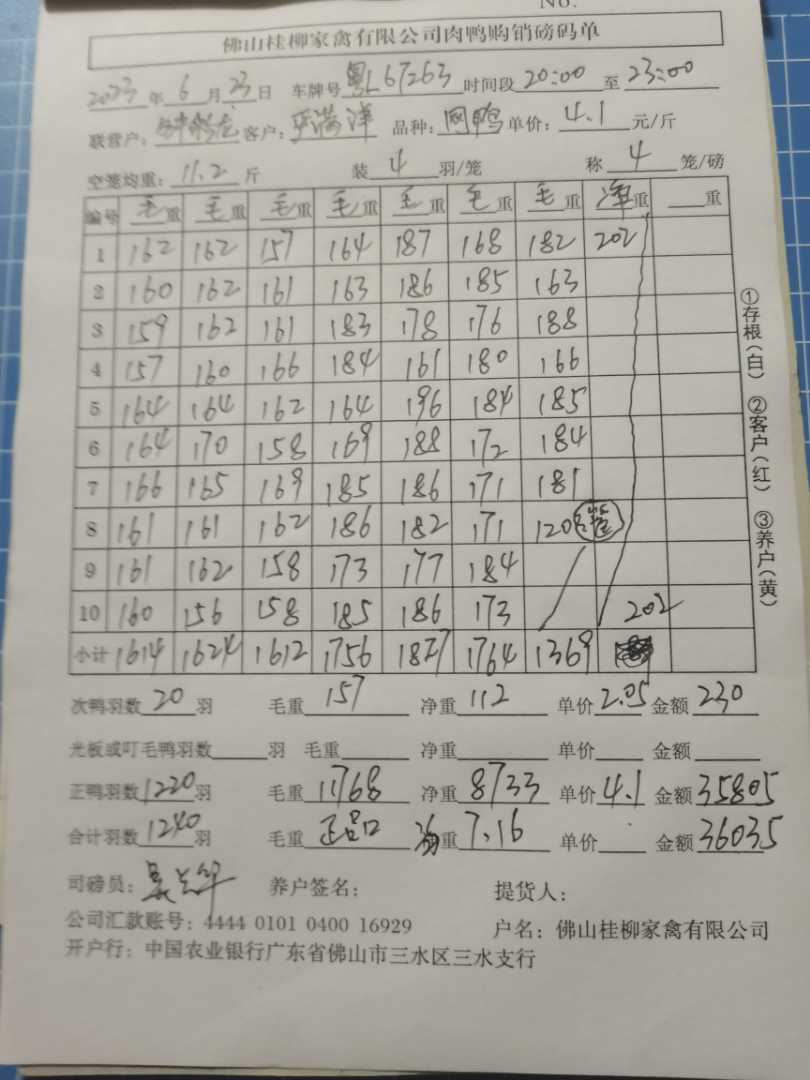 No.
佛山桂柳家禽有限公司肉鸭购销磅码单
2023年6月23日 车牌号粤L67263 时间段20:00至23:00
联营户: 客户: 满洋 品种: 鸭 单价: 4.1元/斤
空笼均重: 11.2斤 装4羽/笼 称4笼/磅
编号 毛重 毛重 毛重 毛重 毛重 毛重 毛重 净重 重
1 162 162 157 164 187 168 182 202
2 160 162 161 163 186 185 163
3 159 162 161 183 178 176 188
4 157 160 166 184 161 180 166
5 164 164 162 164 196 184 185
6 164 170 158 169 188 172 184
7 166 165 169 185 186 171 181
8 161 161 162 186 182 171 120
9 161 162 158 173 177 184
10 160 156 158 185 186 173 202
小计 1614 1624 1612 1756 1827 1764 1369
①存根(白) ②客户(红) ③养户(黄)
次鸭羽数20羽 毛重157 净重112 单价2.05 金额230
光板或叮毛鸭羽数 羽 毛重 净重 单价 金额
正鸭羽数1220羽 毛重11768 净重8733 单价4.1 金额35805
合计羽数1240羽 毛重 重7.16 单价 金额36035
司磅员: 养户签名: 提货人:
公司汇款账号: 4444 0101 0400 16929 户名: 佛山桂柳家禽有限公司
开户行: 中国农业银行广东省佛山市三水区三水支行